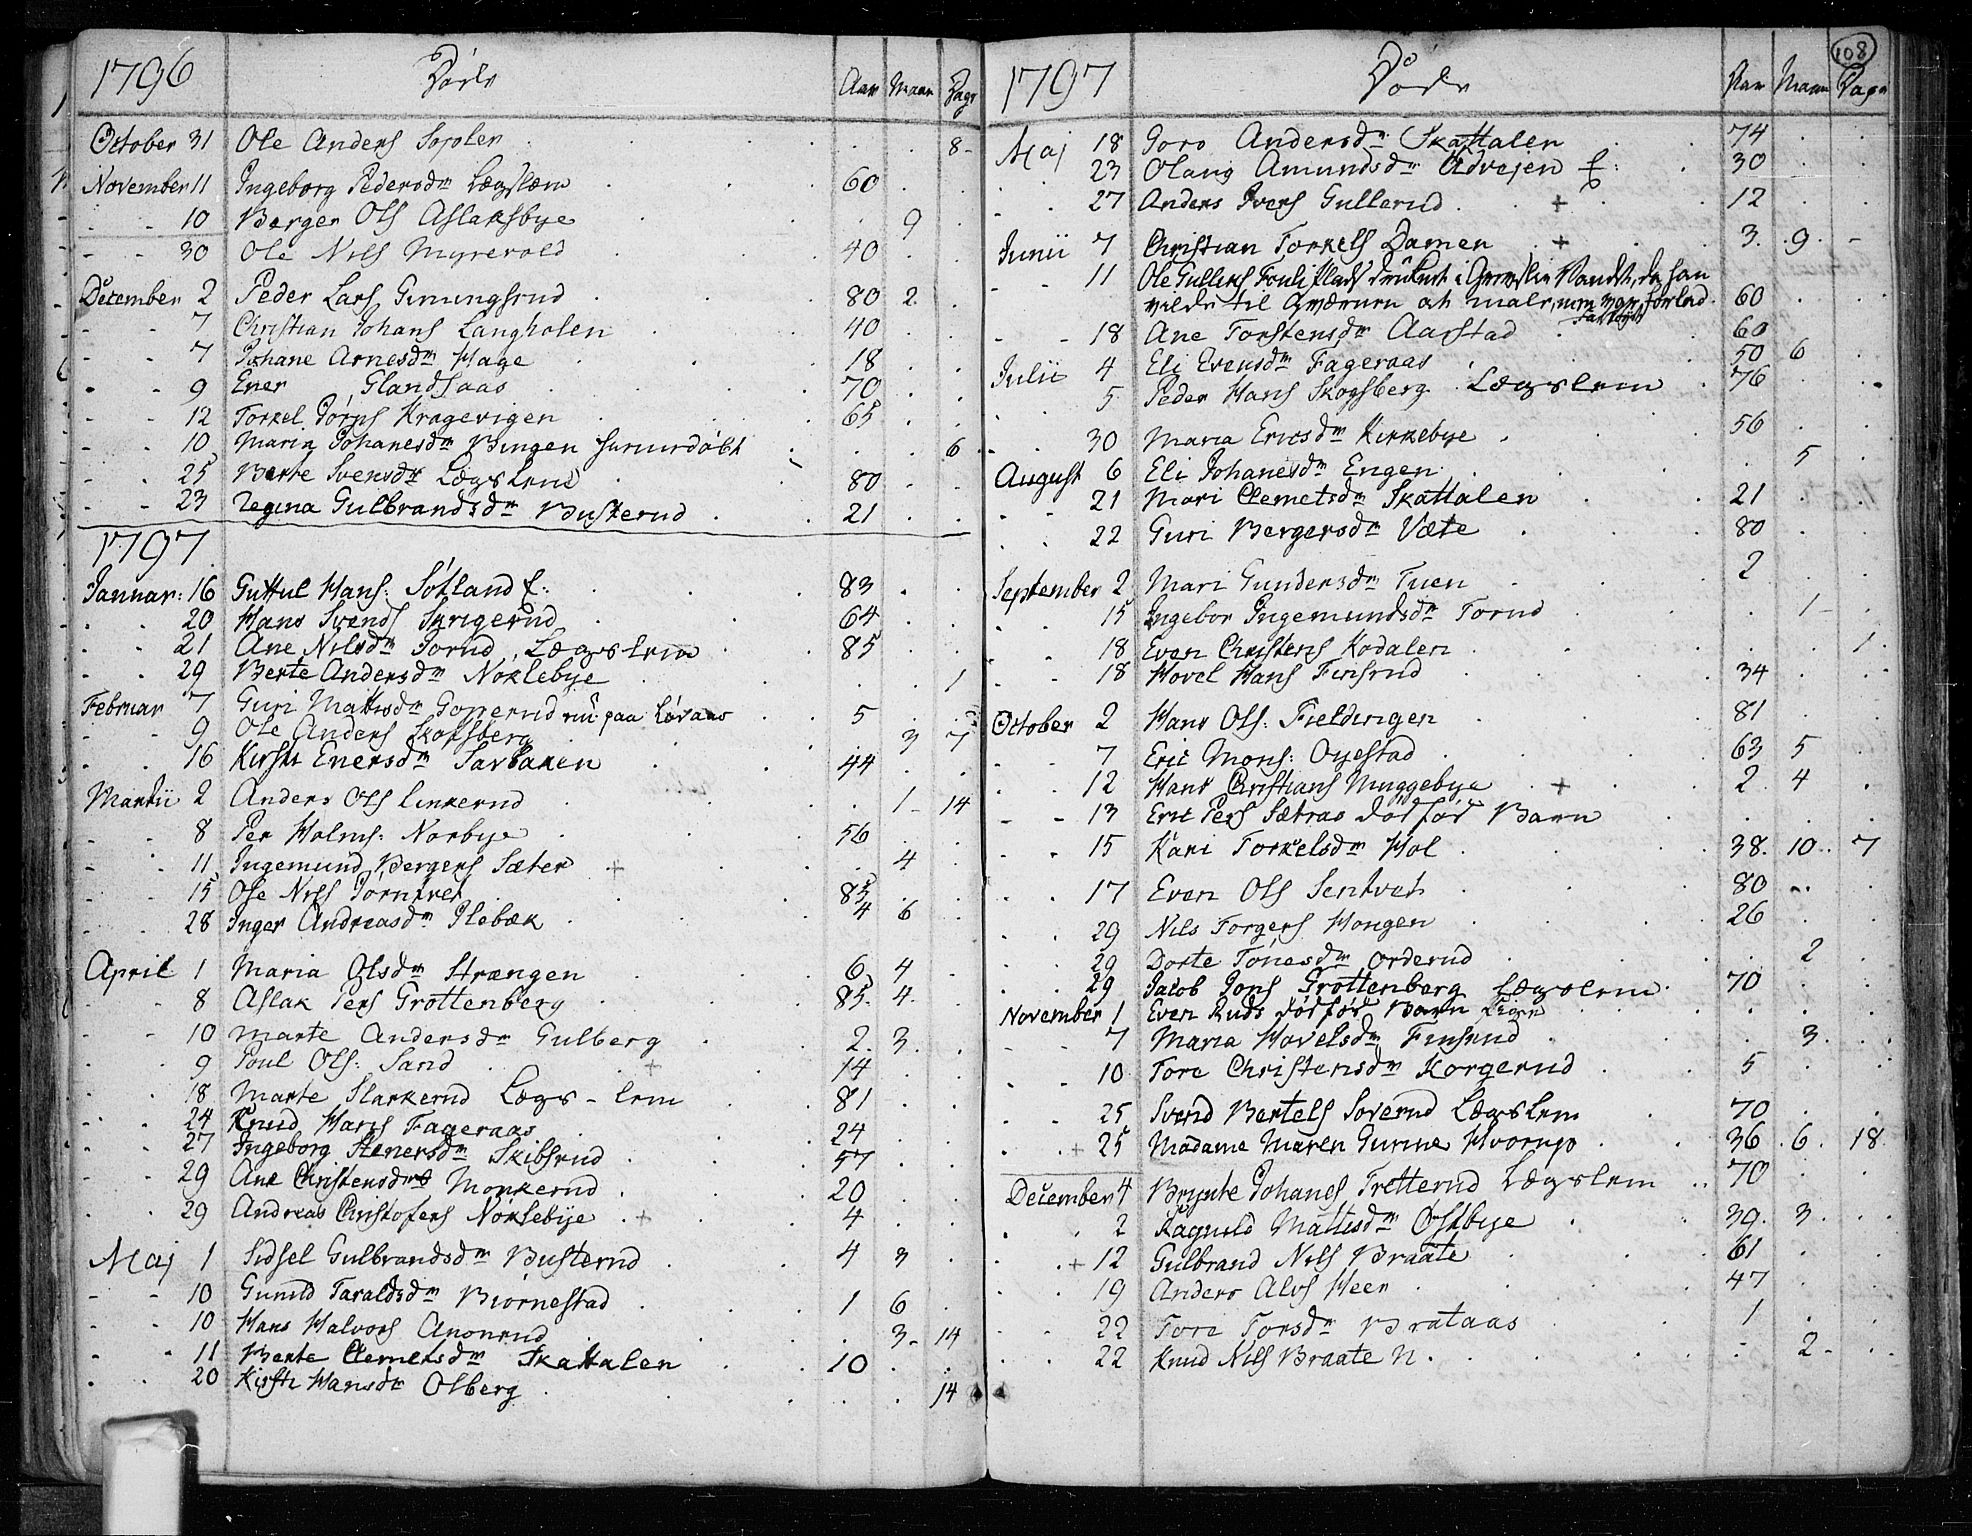 1796 Døde Aar Maan Dage
October 31 Ole Anders 8
November 11 Ingeborg Pedersdr Lægslæm 60
10 Berger Ols Aslaksbye 9
30 Ole Nils Myrevold 40
December 2 Peder Lars Gunungsrud 80 2
7 Christian Johans Langholen 40
7 Johane Arnesdr Hage 18
9 Ener Glandsaas 70
12 Torkel Jörns Kragevigen 65
10 Maria Johanesdr Bingen hiemdöbt 6
25 Berte Svensdr Lægslem 80
23 Regina Gulbrandsdr Busterud 21
1797
Januar: 16 Guttul Hans: Sötland f: 83
20 Hans Svends Skrigerud 64
21 Ane Nilsdr Torud, Lægslem 85
29 Berte Andersdr Noklebye 1
Februar 7 Guri Mattisdr Goperud nu paa Løvaas 5
9 Ole Anders Skoksberg 3 7
16 Kirsti Enersdr Sarbaken 44
Martii 2 Anders Ols Linkerud 1 14
8 Per Holms: Norbye 56
11 Ingemund Bergers Sæter + 4
15 Ose Nils Torntvet 83
28 Inger Andreasdr Plebæk 4 6
April 1 Maria Olsdr Strængen 6 4
8 Aslak Pers Grottenberg 85 4
10 Marte Andersdr Gulberg 2 3
9 Poul Ols: Sand + 14
18 Marte Starkerud Lægs-lem 81
24 Knud Hans Fageraas 24
27 Ingeborg Stenersdr Skibsrud 57
29 Ane Christensdr Monkerud 20
29 Andreas Christofers Noklebye + 4
Maj 1 Sidsel Gulbrandsdr Busterud 4 3
10 Gunild Taraldsdr Biörnestad 1 6
10 Hans Halvors Anonrud 3 14
11 Berte Clemetsdr Skattalen 10
20 Kirsti Hansdr Olberg 14
108
1797 Døde Aar Maan Dage
Maj 18 Goro Andersdr Skattalen 74
23 Olaug Amundsdr Advejen f: 30
27 Anders Ivers Gullerud + 12
Junii 7 Christian Torkels Damen + 3 9
11 Ole Gullers Fouli Plads druknet i Vandet, da han
vilde til Qværnen at male, 60
18 Ane Torstensdr Aarstad 60
Julii 4 Eli Evensdr Fageraas 50 6
5 Peder Hans Skogsberg Lægslem 76
30 Maria Ericsdr Kirkebye 56
August 6 Eli Johanesdr Engen 5
21 Mari Clemetsdr Skattalen 21
22 Guri Bergersdr Væte 80
September 2 Mari Gundersdr Tuen 2
15 Ingebor Ingemundsdr Torud 1
18 Even Christens Kodalen 1
18 Hovel Hans Finsrud 34
October 2 Hans Ols: Fieldingen 81
7 Eric Mons: Oyestad 63 5
12 Hans Christians Muggebye + 2 4
13 Eric Pers Sætras död för Barn
15 Kari Torkelsdr Hol 38 10 7
17 Even Ols Sentvet 80
29 Nils Torgers Hongen 26
29 Dorte Tönesdr Orderud 2
29 Jacob Jons Grottenberg Lægslem 70
November 1 Even Ruds död för Barn
7 Maria Hovelsdr Finsrud 3
10 Tore Christensdr Korgerud 5
25 Svend Bertels Soverud Lægslem 70
+ 25 Madame Maren Gurine Hvornjo 36 6 18
December 4 Brynte Johanes Tretterud Lægslem 70
2 Ragnild Mattisdr Østbye 39 3
+ 12 Gulbrand Nils Braate 61
19 Anders Alvs Heer 47
22 Tore Torsdr Brataas 1
22 Knud Nils Braate N. 2